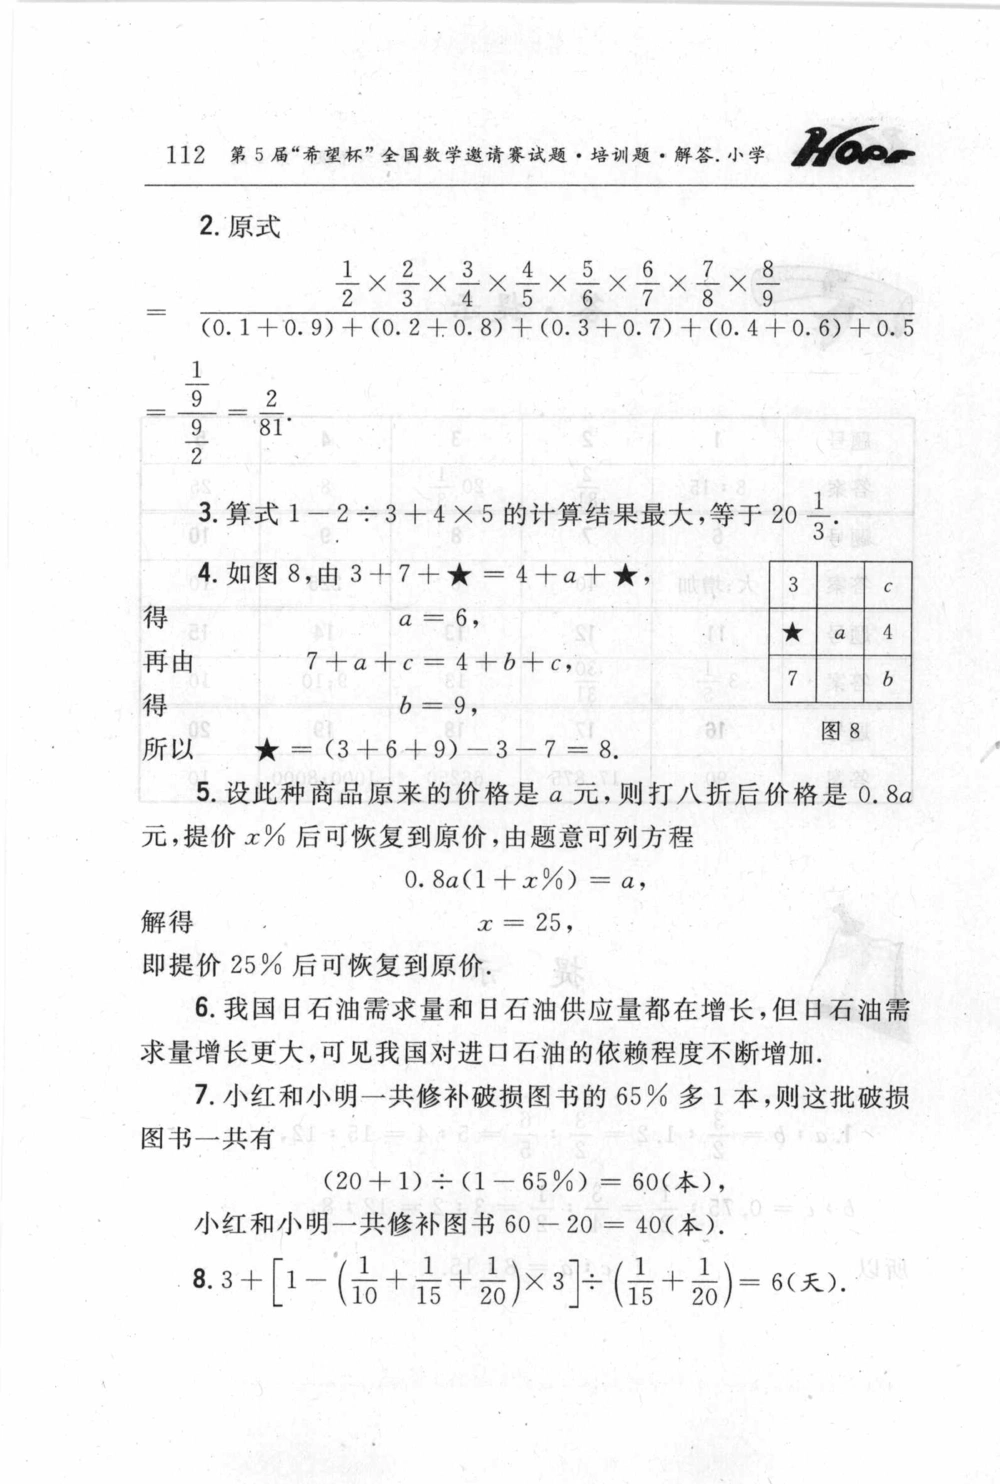 112 第5届“希望杯”全国数学邀请赛试题·培训题·解答.小学 HOPE
2.原式
= (1/2×2/3×3/4×4/5×5/6×6/7×7/8×8/9)/((0.1+0.9)+(0.2+0.8)+(0.3+0.7)+(0.4+0.6)+0.5)
= (1/9)/(9/2) = 2/81.
3.算式1-2÷3+4×5的计算结果最大,等于20 1/3.
4.如图8,由3+7+★=4+a+★,
得 a=6,
再由 7+a+c=4+b+c,
得 b=9,
所以 ★=(3+6+9)-3-7=8.
3 c
★ a 4
7 b
图8
5.设此种商品原来的价格是a元,则打八折后价格是0.8a
元,提价x%后可恢复到原价,由题意可列方程
0.8a(1+x%)=a,
解得 x=25,
即提价25%后可恢复到原价.
6.我国日石油需求量和日石油供应量都在增长,但日石油需
求量增长更大,可见我国对进口石油的依赖程度不断增加.
7.小红和小明一共修补破损图书的65%多1本,则这批破损
图书一共有
(20+1)÷(1-65%)=60(本),
小红和小明一共修补图书60-20=40(本).
8.3+[1-(1/10+1/15+1/20)×3]÷(1/15+1/20)=6(天).